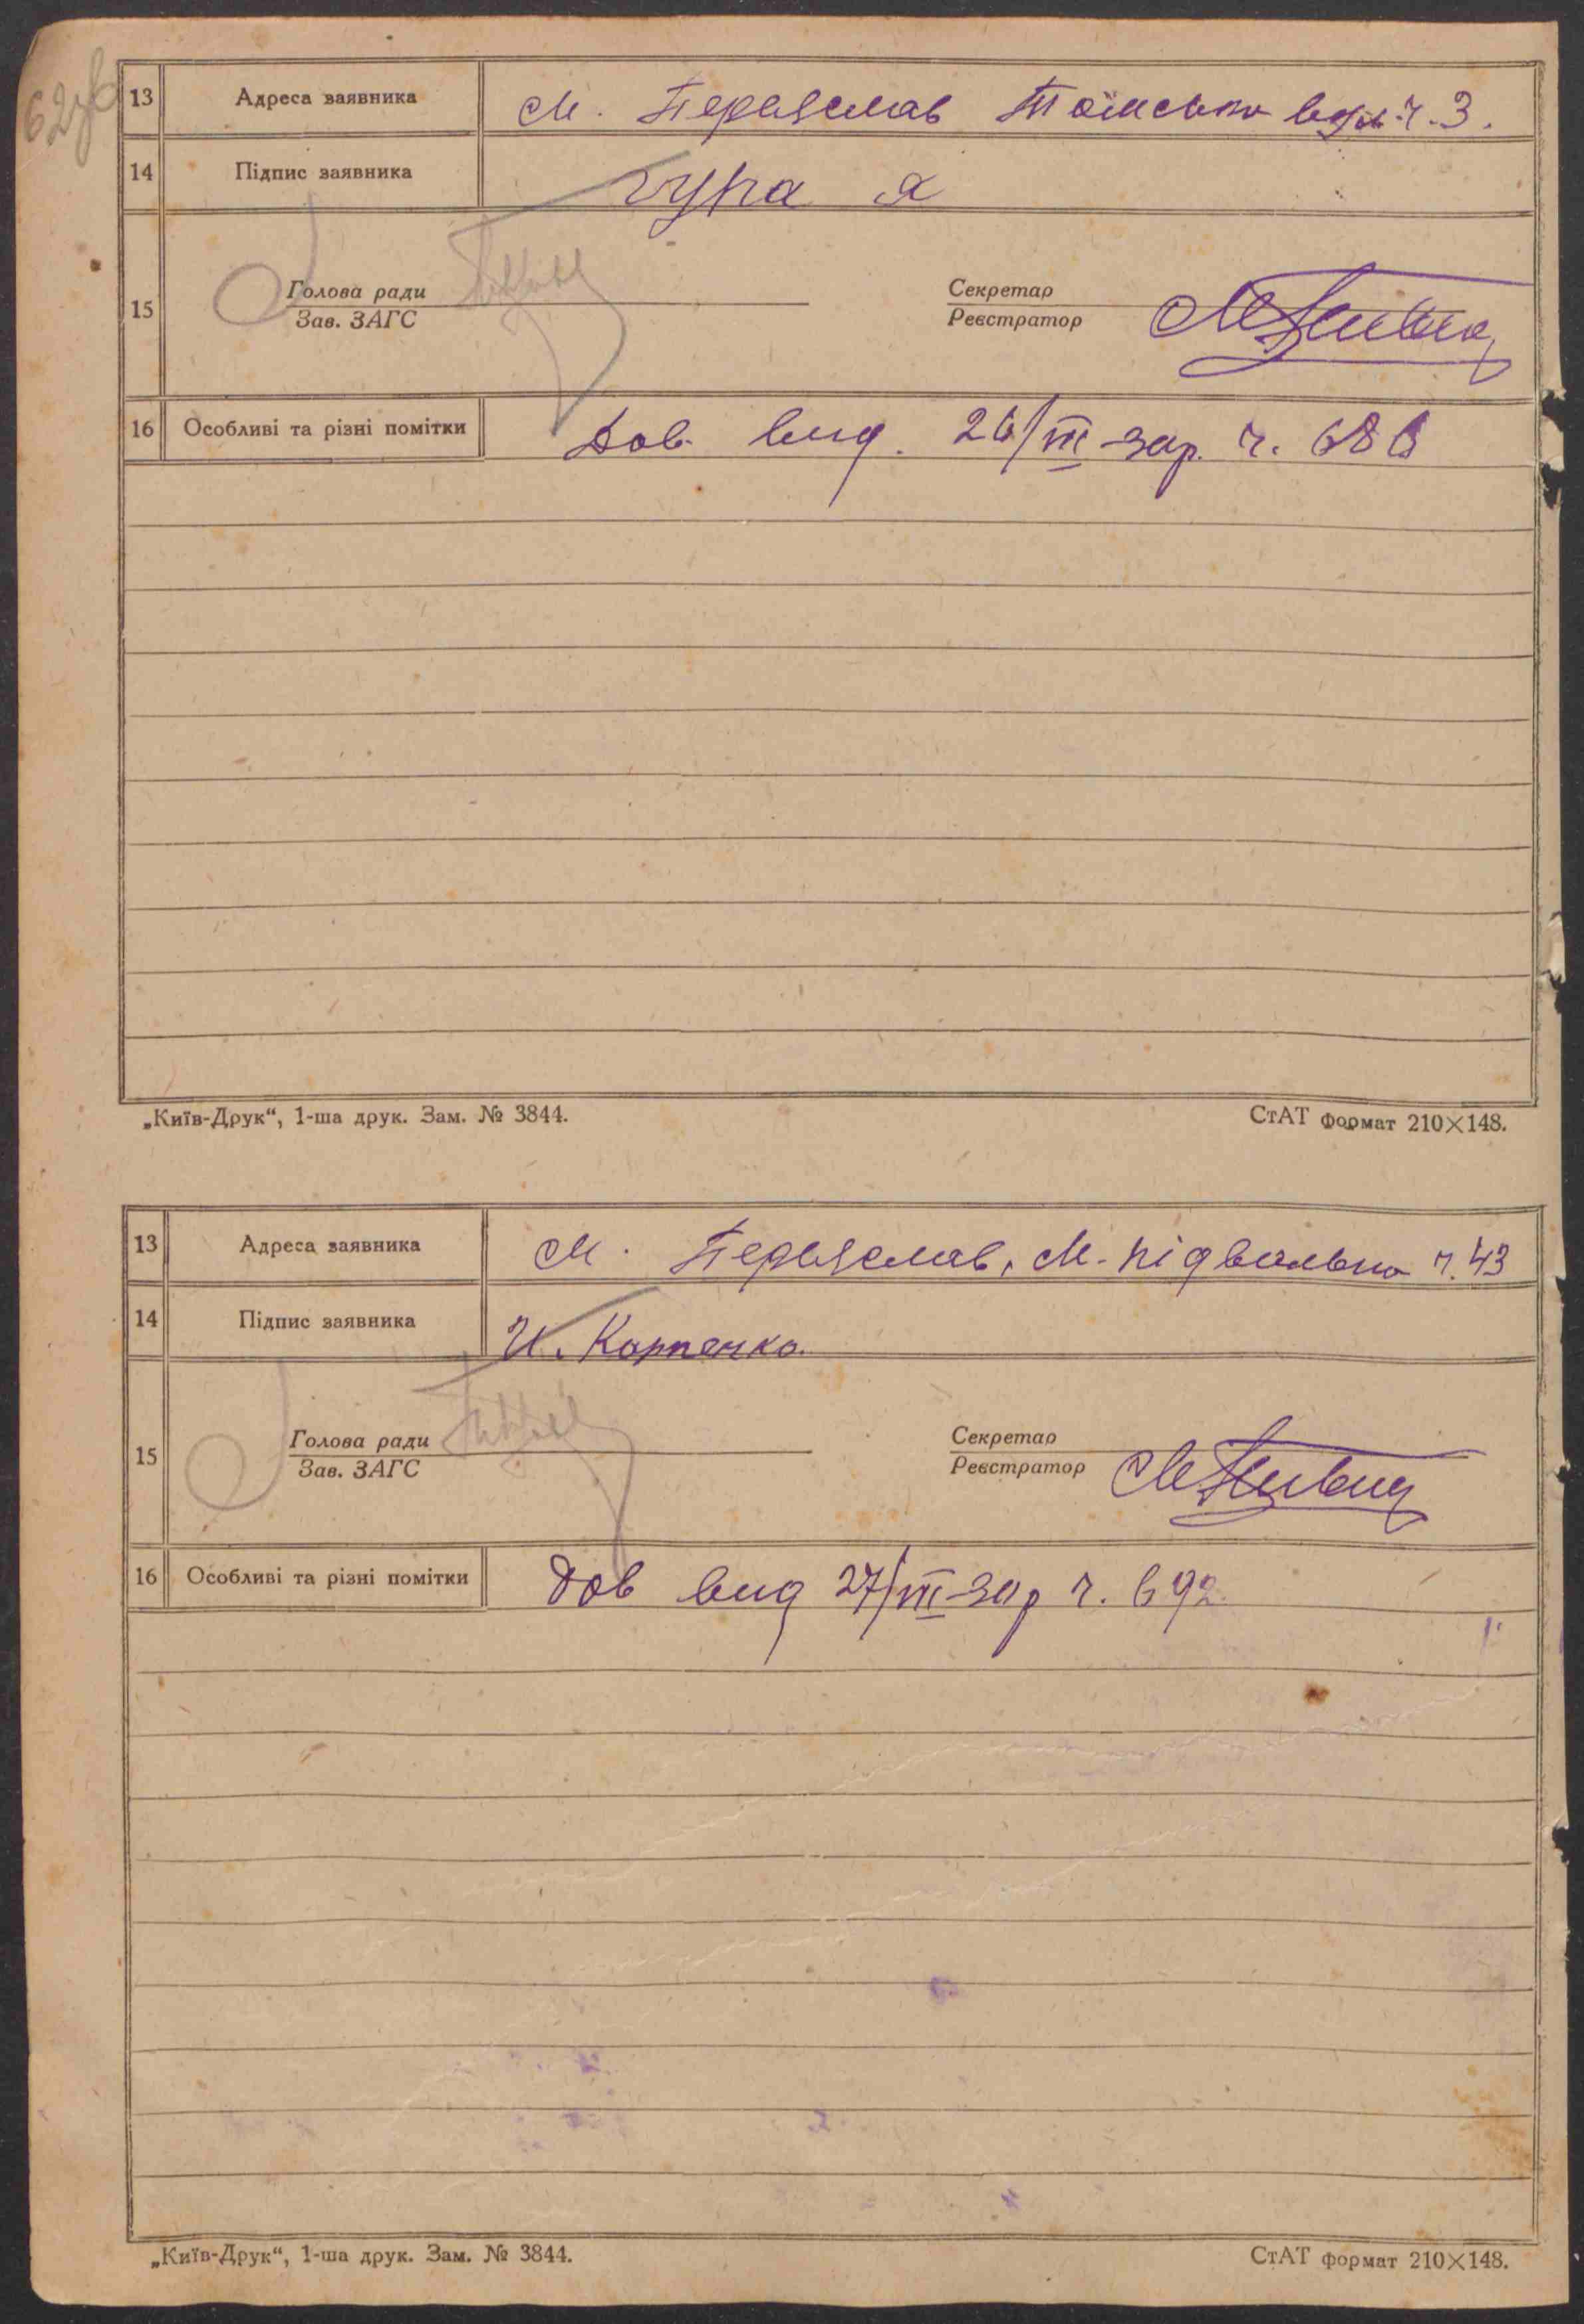 62зв
13 Адреса заявника м. Переяслав вул. ч. 3.
14 Підпис заявника
15 Голова ради Секретар
Зав. ЗАГС Реєстратор
16 Особливі та різні помітки Дов. вид. 26/III зар. ч. 686
„Київ-Друк“, 1-ша друк. Зам. № 3844. СтАТ формат 210×148.
13 Адреса заявника м. Переяслав, М-підвальна ч. 43
14 Підпис заявника И. Карпенко.
15 Голова ради Секретар
Зав. ЗАГС Реєстратор
16 Особливі та різні помітки Дов вид 27/III зар ч. 692
„Київ-Друк“, 1-ша друк. Зам. № 3844. СтАТ формат 210×148.